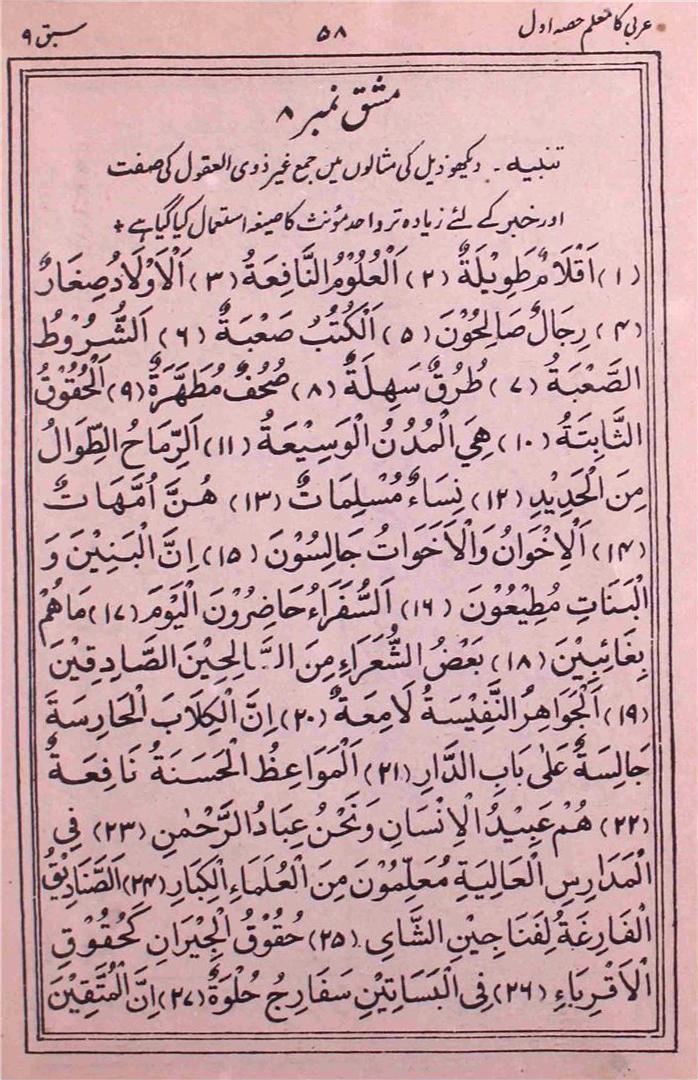 عربی کا معلم حصہ اول ۵۸ سبق ۹
مشق نمبر ۸
تنبیہ۔ دیکھو ذیل کی مثالوں میں جمع غیر ذوی العقول کی صفت
اور خبر کے لئے زیادہ تر واحد مؤنث کا صیغہ استعمال کیا گیا ہے +
(۱) اَقْلَامٌ طَوِیْلَةٌ (۲) اَلْعُلُوْمُ النَّافِعَةُ (۳) اَلْاَوْلَادُ صِغَارٌ
(۴) رِجَالٌ صَالِحُوْنَ (۵) اَلْکُتُبُ صَعْبَةٌ (۶) اَلشُّرُوْطُ
الصَّعْبَةُ (۷) طُرُقٌ سَهِلَةٌ (۸) صُحُفٌ مُطَهَّرَةٌ (۹) اَلْحُقُوْقُ
الثَّابِتَةُ (۱۰) هِيَ الْمُدُنُ الْوَسِیْعَةُ (۱۱) اَلرِّمَاحُ الطِّوَالُ
مِنَ الْحَدِیْدِ (۱۲) نِسَاءٌ مُسْلِمَاتٌ (۱۳) هُنَّ اُمَّهَاتٌ
(۱۴) اَلْاِخْوَانُ وَالْاَخَوَاتُ جَالِسُوْنَ (۱۵) اِنَّ الْبَنِیْنَ وَ
الْبَنَاتِ مُطِیْعُوْنَ (۱۶) اَلسُّفَرَاءُ حَاضِرُوْنَ الْیَوْمَ (۱۷) مَا هُمْ
بِغَائِبِیْنَ (۱۸) بَعْضُ الشُّعَرَاءِ مِنَ الصَّالِحِیْنَ الصَّادِقِیْنَ
(۱۹) اَلْجَوَاهِرُ النَّفِیْسَةُ لَامِعَةٌ (۲۰) اِنَّ الْکِلَابَ الْحَارِسَةَ
جَالِسَةٌ عَلٰی بَابِ الدَّارِ (۲۱) اَلْمَوَاعِظُ الْحَسَنَةُ نَافِعَةٌ
(۲۲) هُمْ عَبِیْدُ الْاِنْسَانِ وَنَحْنُ عِبَادُ الرَّحْمٰنِ (۲۳) فِي
الْمَدَارِسِ الْعَالِیَةِ مُعَلِّمُوْنَ مِنَ الْعُلَمَاءِ الْکِبَارِ (۲۴) اَلصَّنَادِیْقُ
الْفَارِغَةُ لِفَنَاجِیْنِ الشَّاي (۲۵) حُقُوْقُ الْجِیْرَانِ کَحُقُوْقِ
الْاَقْرِبَاءِ (۲۶) فِی الْبَسَاتِیْنِ سَفَارِجُ حُلْوَةٌ (۲۷) اِنَّ الْمُتَّقِیْنَ